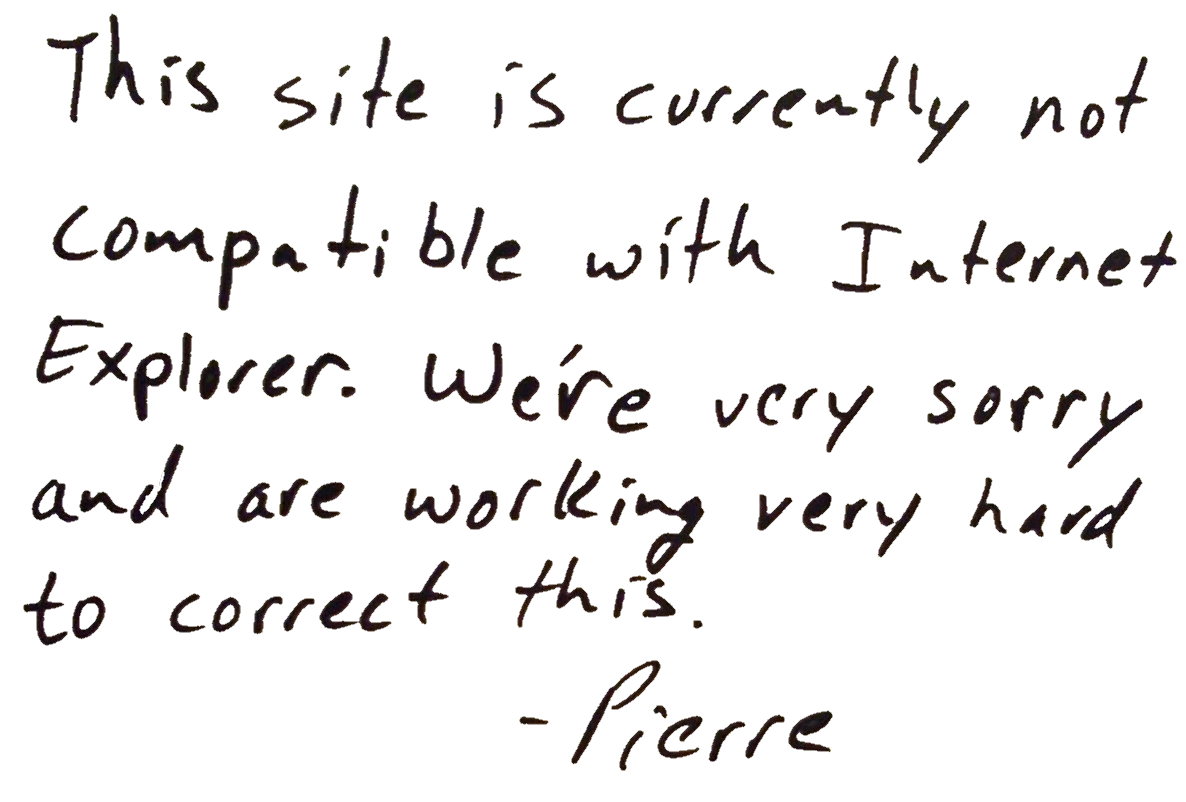 This site is currently not
compatible with Internet
Explorer. We're very sorry
and are working very hard
to correct this.
- Pierre